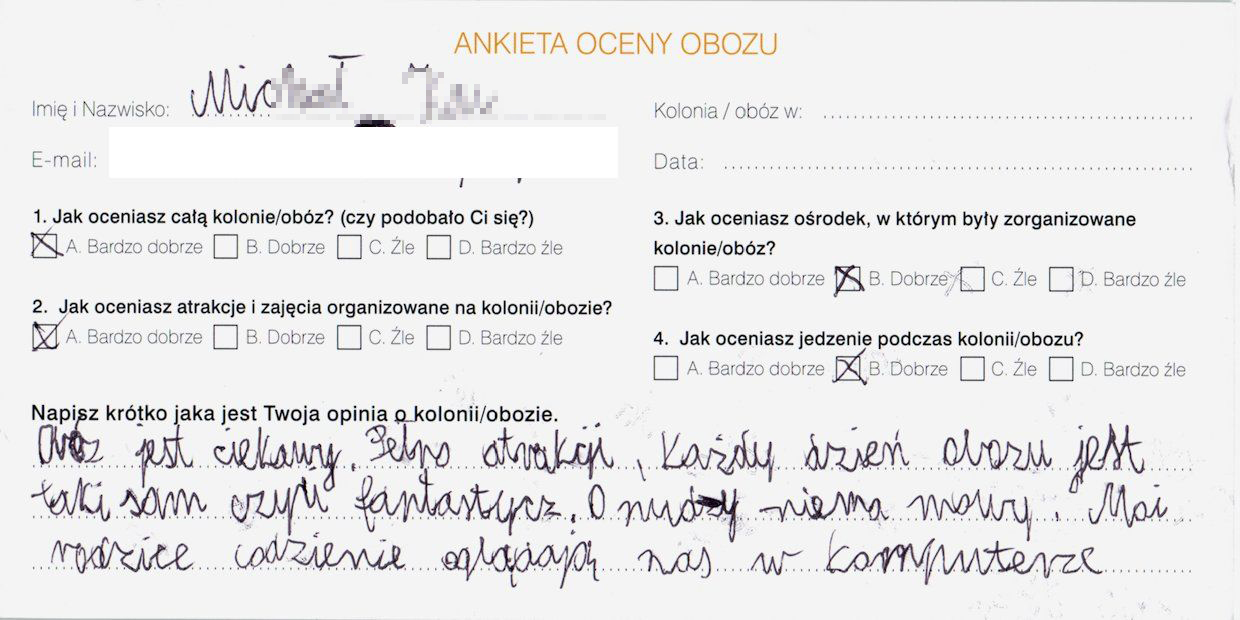 ANKIETA OCENY OBOZU
Imię i Nazwisko:
Kolonia / obóz w:
E-mail:
Data:
1. Jak oceniasz całą kolonie/obóz? (czy podobało Ci się?)
A. Bardzo dobrze B. Dobrze C. Źle D. Bardzo źle
2. Jak oceniasz atrakcje i zajęcia organizowane na kolonii/obozie?
A. Bardzo dobrze B. Dobrze C. Źle D. Bardzo źle
3. Jak oceniasz ośrodek, w którym były zorganizowane
kolonie/obóz?
A. Bardzo dobrze B. Dobrze C. Źle D. Bardzo źle
4. Jak oceniasz jedzenie podczas kolonii/obozu?
A. Bardzo dobrze B. Dobrze C. Źle D. Bardzo źle
Napisz krótko jaka jest Twoja opinia o kolonii/obozie.
Obóz jest ciekawy. Pełno atrakcji. Każdy dzień obozu jest
taki sam czyli fantastycz. O nudzy niema mowy. Moi
rodzice codzienie oglądają nas w komputerze